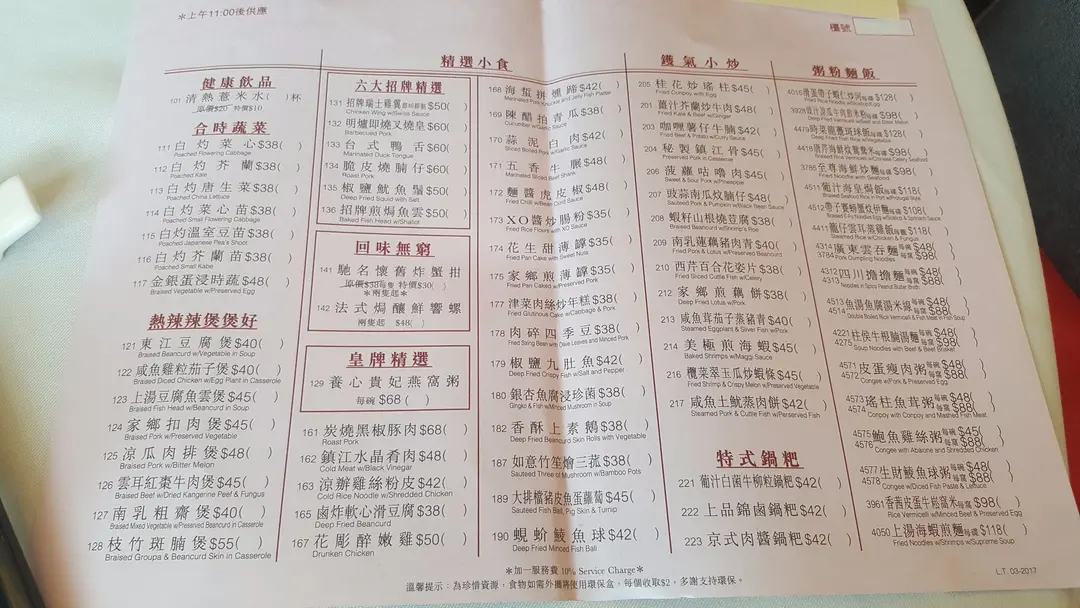 ＊上午11:00後供應
檯號
精選小食
鑊氣小炒
健康飲品
101 清熱薏米水( )杯
原價$20 特價$10
合時蔬菜
111 白灼菜心$38( )
Poached Flowering Cabbage
112 白灼芥蘭$38( )
Poached Kale
113 白灼唐生菜$38( )
Poached China Lettuce
114 白灼菜心苗$38( )
Poached Small Flowering Cabbage
115 白灼溫室豆苗$38( )
Poached Japanese Pea's Shoot
116 白灼芥蘭苗$38( )
Poached Small Kale
117 金銀蛋浸時蔬$48( )
Preserved Vegetable w/Preserved Egg
熱辣辣煲煲好
121 東江豆腐煲$40( )
Braised Beancurd w/Vegetable in Soup
122 咸魚雞粒茄子煲$40( )
Braised Diced Chicken w/Egg Plant in Casserole
123 上湯豆腐魚雲煲$45( )
Braised Fish Head w/Beancurd in Soup
124 家鄉扣肉煲$45( )
Braised Pork w/Preserved Vegetable
125 涼瓜肉排煲$48( )
Braised Pork w/Bitter Melon
126 雲耳紅棗牛肉煲$45( )
Braised Beef w/Dried Kangerine Peef & Fungus
127 南乳粗齋煲$40( )
Braised Mixed Vegetable w/Preserved Beancurd in Casserole
128 枝竹斑腩煲$55( )
Braised Groupa & Beancurd Skin in Casserole
六大招牌精選
131 招牌瑞士雞翼$50( )
Chicken Wing w/Swiss Sauce
132 明爐即燒叉燒皇$60( )
Barbecued Pork
133 台式鴨舌$60( )
Marinated Duck Tongue
134 脆皮燒腩仔$60( )
Roast Pork
135 椒鹽魷魚鬚$50( )
Deep Fried Squid with Salt
136 招牌煎焗魚雲$50( )
Baked Fish Head w/Shallot
回味無窮
141 馳名懷舊炸蟹拑
原價$38每隻 特價$30( )
＊兩隻起＊
142 法式焗釀鮮響螺
兩隻起 $48( )
皇牌精選
129 養心貴妃燕窩粥
每碗 $68( )
161 炭燒黑椒豚肉$68( )
Roast Pork
162 鎮江水晶肴肉$48( )
Cold Meat w/Black Vinegar
163 涼辦雞絲粉皮$42( )
Cold Rice Noodle w/Shredded Chicken
165 鹵炸軟心滑豆腐$38( )
Deep Fried Beancurd
167 花彫醉嫩雞$50( )
Drunken Chicken
168 海蜇拼燻蹄$42( )
Marinated Pork Knuckle and Jelly Fish Platter
169 陳醋拍青瓜$38( )
Cucumber w/Garlic Sauce
170 蒜泥白肉$42( )
Sliced Boiled Pork w/Garlic Sauce
171 五香牛𦟌$48( )
Marinated Sliced Beef Shank
172 麵醬虎皮椒$48( )
Fried Chili w/Bean Cord Sauce
173 XO醬炒腸粉$35( )
Fried Rice Flours with XO Sauce
174 花生甜薄罉$35( )
Fried Pan Cake w/Sweet Nuts
175 家鄉煎薄罉$35( )
Fried Pan Caked w/Preserved
177 津菜肉絲炒年糕$38( )
Fried Glutinous Cake w/Cabbage & Pork
178 肉碎四季豆$38( )
Fried String Bean with Olive Leaves and Minced Pork
179 椒鹽九肚魚$42( )
Deep Fried Crispy Fish w/Salt and Pepper
180 銀杏魚腐浸珍菌$38( )
Gingko & Fish w/Minced Mushroom in Soup
182 香酥上素鵝$38( )
Deep Fried Beancurd Skin Rolls with Vegetable
187 如意竹笙燴三菰$38( )
Sauteed Three of Mushroom w/Bamboo Pots
189 大排檔豬皮魚蛋蘿蔔$45( )
Sauteed Fish Ball, Pig Skin & Turnip
190 蜆蚧鯪魚球$42( )
Deep Fried Minced Fish Ball
205 桂花炒瑤柱$45( )
Fried Conpoy with Egg
201 薑汁芥蘭炒牛肉$48( )
Fried Kale & Beef w/Ginger
203 咖喱薯仔牛腩$42( )
Fried Beef & Potato w/Curry Sauce
204 秘製鎮江骨$45( )
Preserved Pork in Casserole
206 菠蘿咕嚕肉$45( )
Sweet & Sour Pork w/Pineapple
207 豉蒜南瓜炆腩仔$48( )
Sauteed Pork & Pumpkin w/Black Bean Sauce
208 蝦籽山根燒荳腐$38( )
Braised Beancurd w/Shrimp's Roe
209 南乳蓮藕豬肉青$40( )
Fried Pork & Lotus w/Preserved Beancurd
210 西芹百合花姿片$38( )
Fried Sliced Cuttle Fish w/Celery
212 家鄉煎藕餅$38( )
Deep Fried Lotus w/Pork
213 咸魚茸茄子蒸豬青$40( )
Steamed Eggplant & Silver Fish w/Pork
214 美極煎海蝦$45( )
Baked Shrimps w/Maggi Sauce
216 欖菜翠玉瓜炒蝦條$45( )
Fried Shrimp & Crispy Melon w/Preserved Vegetable
217 咸魚土魷蒸肉餅$42( )
Steamed Pork & Cuttle Fish w/Preserved Fish
特式鍋粑
221 葡汁白菌牛柳粒鍋粑$42( )
222 上品錦鹵鍋粑$42( )
223 京式肉醬鍋粑$42( )
粥粉麵飯
4015 滑蛋帶子蝦仁炒河每碟$128( )
每碟$98( )
Deep Fried Vermicelli w/Beef and Bitter Melon
4479 時菜龍躉斑球飯每碟$128( )
Deep Fried Rice w/Fish
4418 唐芹海鮮炆鴛鴦米每碟$98( )
Braised Rice Vermicelli w/Chinese Celery Seafood
3785 至尊海鮮炒麵每碟$98( )
Fried Noodle with Seafood
4511 葡汁海皇焗飯每碟$118( )
Braised Seafood Rice in Port w/Portugal Style
4512 帶子蟹粉蛋炆伊麵每碟$108( )
Braised E-Fu Noodles Egg w/Scallop & Spinach Sauce
4411 籠仔雲耳蒸雞飯每碟$118( )
Steamed Rice w/Chicken & Fungus
4314 廣東雲吞麵每碗$48( )
3784 Pork Dumpling Noodles 每窩$98( )
4312 四川擔擔麵每碗$48( )
4313 Noodles in Spicy Peanut Butter Broth 每窩$98( )
4513 魚湯魚腐湯米線每碗$48( )
4514 Double Boiled Rice Vermicell & Fish Meat in Fish Soup 每窩$88( )
4221 柱侯牛根腩湯麵每碗$48( )
4275 Soup Noodles with Beef & Beef Brisket 每窩$98( )
4571 皮蛋瘦肉粥每碗$48( )
4572 Congee w/Pork & Preserved Egg 每窩$88( )
4573 瑤柱魚茸粥每碗$48( )
4574 Congee w/Conpoy and Mashed Fish Meat 每窩$88( )
4575 鮑魚雞絲粥每碗$45( )
4576 Congee w/Abalone and Shredded Chicken 每窩$88( )
4577 生財鯪魚球粥每碗$48( )
4578 Congee w/Diced Fish Paste & Lettuce 每窩$88( )
3961 香茜皮蛋牛崧窩米每窩$98( )
Rice Vermicelli w/Minced Beef & Preserved Egg
4050 上湯海蝦煎麵每碟$118( )
Fried Noodles w/Shrimps w/Supreme Soup
＊加一服務費 10% Service Charge＊
溫馨提示：為珍惜資源，食物如需外攜將使用環保盒，每個收取$2，多謝支持環保。
L.T. 03-2017